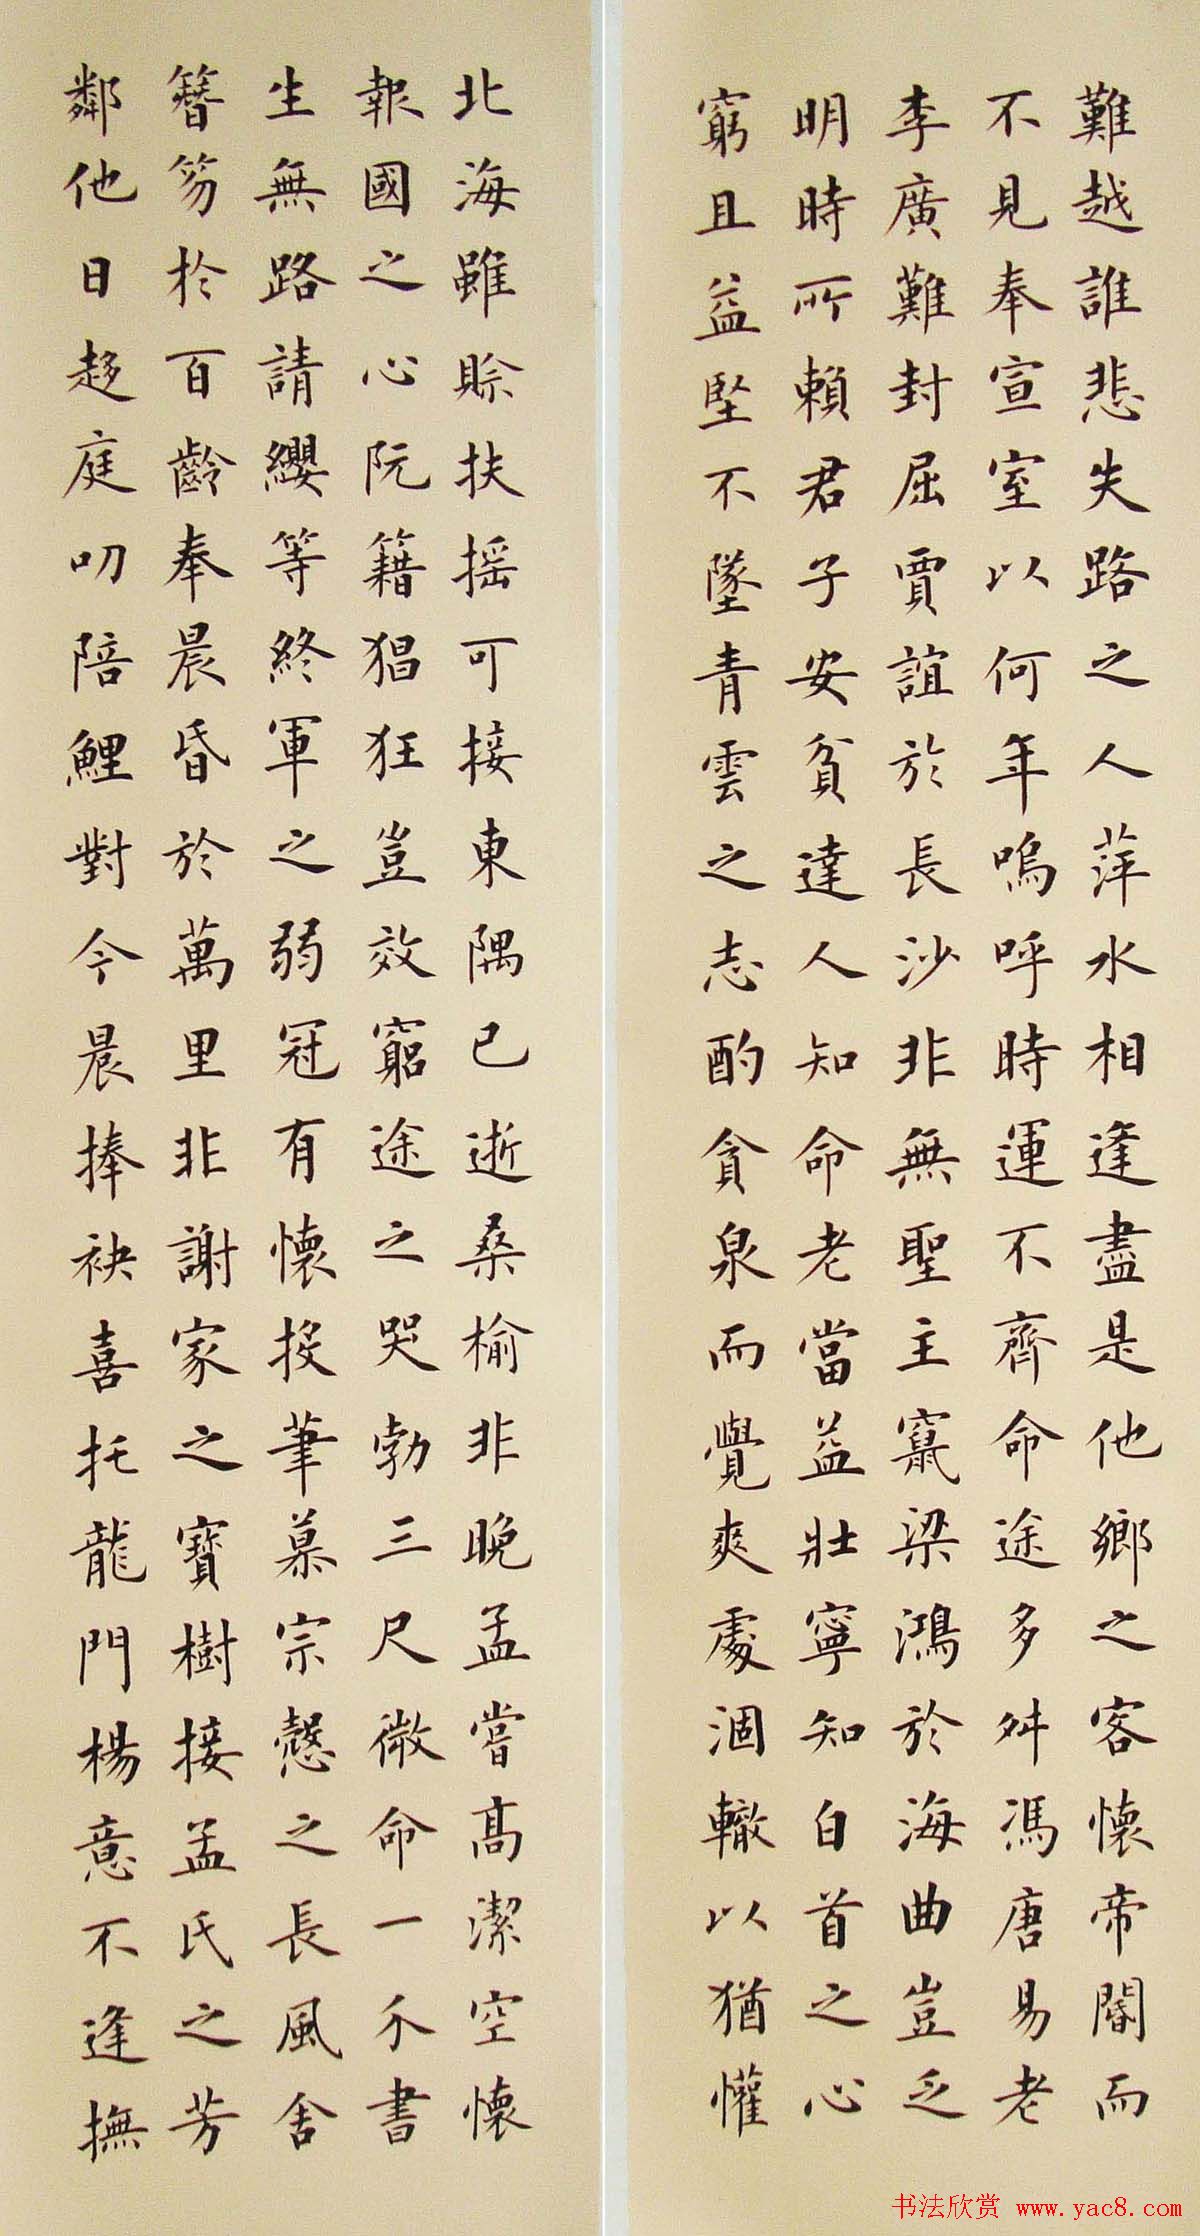 難越誰悲失路之人萍水相逢盡是他鄉之客懷帝閽而
不見奉宣室以何年嗚呼時運不齊命途多舛馮唐易老
李廣難封屈賈誼於長沙非無聖主竄梁鴻於海曲豈乏
明時所賴君子安貧達人知命老當益壯寧知白首之心
窮且益堅不墜青雲之志酌貪泉而覺爽處涸轍以猶懽
北海雖賒扶摇可接東隅已逝桑榆非晚孟嘗高潔空懷
報國之心阮籍猖狂豈效窮途之哭勃三尺微命一介書
生無路請纓等終軍之弱冠有懷投筆慕宗慤之長風舍
簪笏於百齡奉晨昏於萬里非謝家之寶樹接孟氏之芳
鄰他日趍庭叨陪鯉對今晨捧袂喜托龍門楊意不逢撫
书法欣赏 www.yac8.com